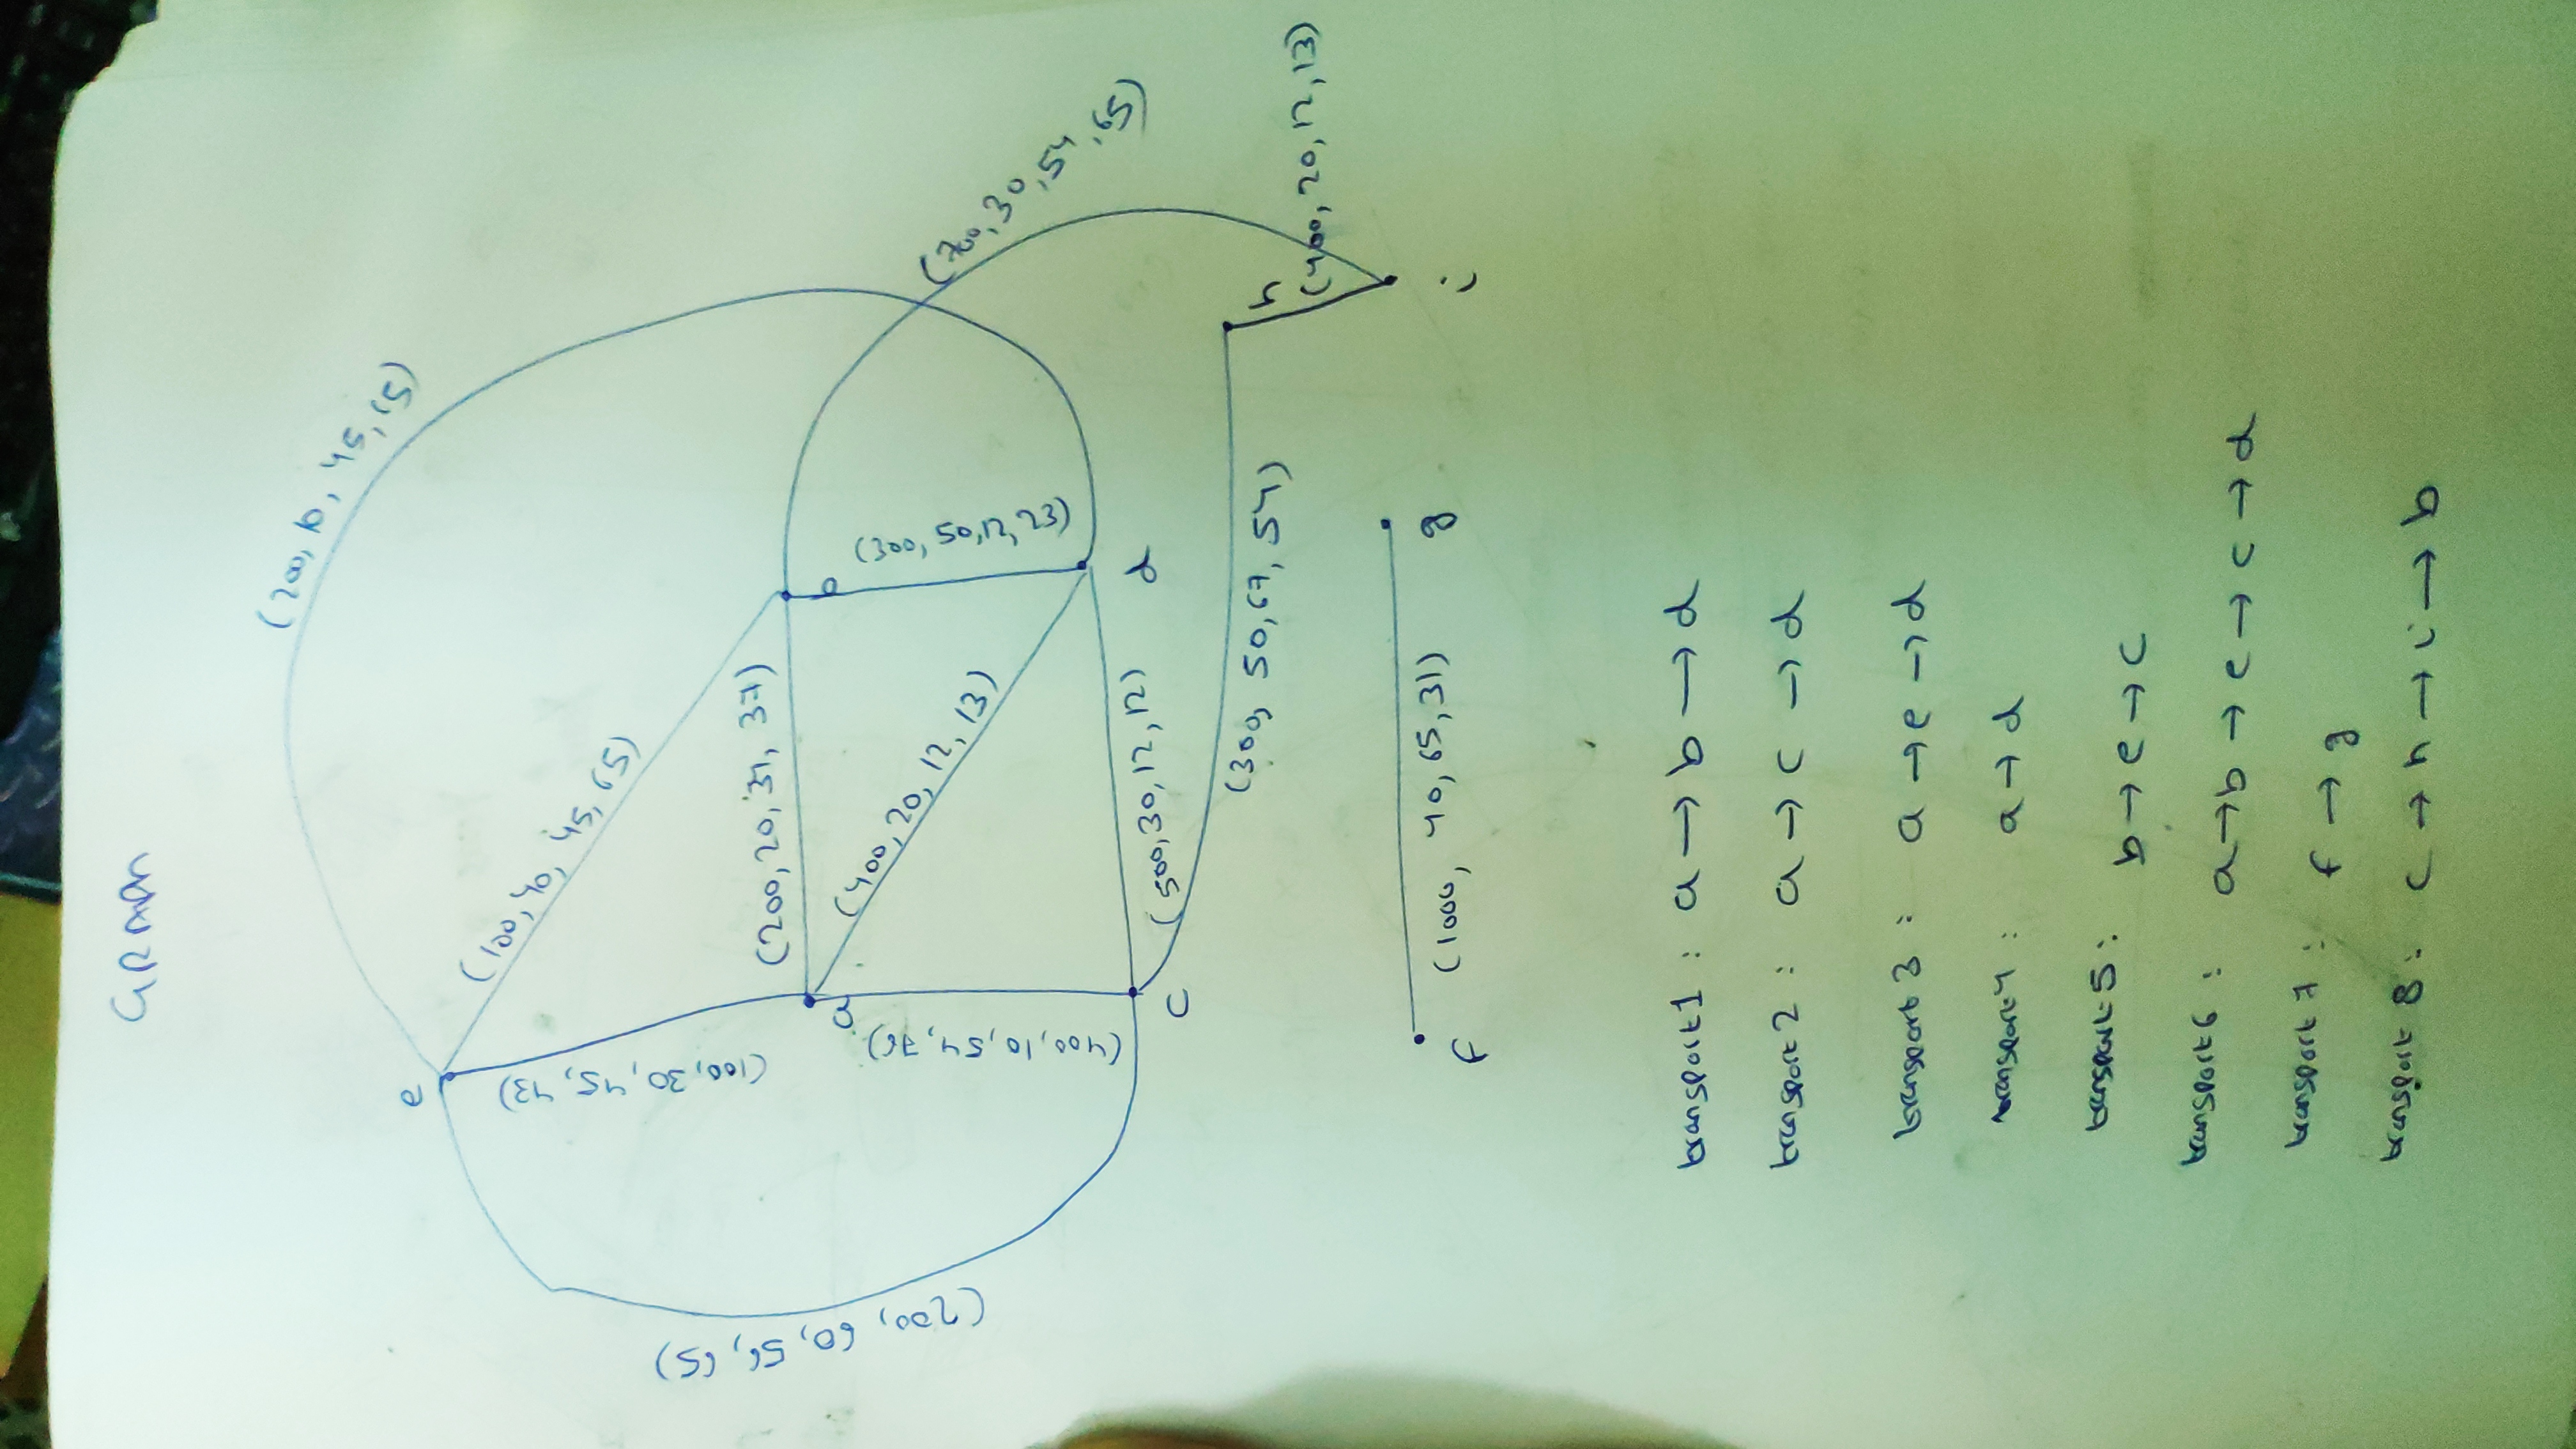 GRAPh
(200, 10, 45, 65)
e
(100, 40, 45, 65)
(100, 30, 45, 43)
(200, 60, 56, 65)
(200, 20, 31, 37)
a
b
(400, 20, 12, 13)
(300, 50, 12, 23)
(400, 10, 54, 76)
(700, 30, 54, 65)
(500, 30, 12, 12)
d
c
(300, 50, 67, 54)
h
(400, 20, 12, 13)
(1000, 40, 65, 31)
f
g
i
transport1 : a → b → d
transport2 : a → c → d
transport 3 : a → e → d
transport4 : a → d
transport5 : b → e → c
transport6 : a → b → e → c → d
transport 7 : f → g
transport 8 : c → h → i → b